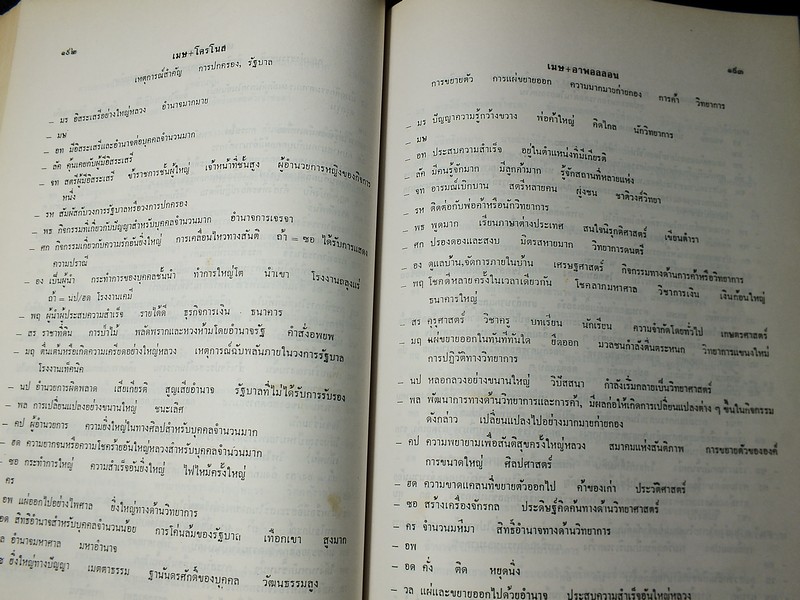 ๑๙๒
เมษ+โครโนส
เหตุการณ์สำคัญ การปกครอง, รัฐบาล
– มร อิสระเสรีอย่างใหญ่หลวง อำนาจมากมาย
– มษ
– อท มีอิสระเสรีและอำนาจต่อบุคคลจำนวนมาก
– ลัค คุ้นเคยกับผู้มีอิสระเสรี
– จท สตรีผู้มีอิสระเสรี ข้าราชการชั้นผู้ใหญ่ เจ้าหน้าที่ชั้นสูง ผู้อำนวยการหญิงของกิจการ
หนึ่ง
– รห สัมผัสกับวงการรัฐบาลหรือวงการปกครอง
– พธ กิจกรรมที่เกี่ยวกับปัญญาสำหรับบุคคลจำนวนมาก อำนาจการเจรจา
– ศก กิจกรรมเกี่ยวกับความรักอันยิ่งใหญ่ การเคลื่อนไหวทางสันติ ถ้า = ซอ ได้รับการแสดง
ความปราณี
– อง เป็นผู้นำ กระทำการของบุคคลชั้นนำ ทำการใหญ่โต นำเขา โรงงานถลุงแร่
ถ้า = นป/อด โรงงานเคมี
– พฤ ผู้นำผู้ประสบความสำเร็จ รายได้ดี ธุรกิจการเงิน ธนาคาร
– สร ราชาที่ดิน การป่าไม้ พลัดพรากและหวงห้ามโดยอำนาจรัฐ คำสั่งอพยพ
– มฤ ตื่นเต้นหรือเกิดความเครียดอย่างใหญ่หลวง เหตุการณ์ฉับพลันภายในวงการรัฐบาล
โรงงานเท็คนิค
– นป อำนวยการผิดพลาด เสียเกียรติ สูญเสียอำนาจ รัฐบาลที่ไม่ได้รับการรับรอง
– พล การเปลี่ยนแปลงอย่างขนานใหญ่ ชนะเลิศ
– คป ผู้อำนวยการ ความยิ่งใหญ่ในทางศิลปสำหรับบุคคลจำนวนมาก
– ฮด ความยากจนหรือความโชคร้ายอันใหญ่หลวงสำหรับบุคคลจำนวนมาก
– ซอ กระทำการใหญ่ ความสำเร็จอันยิ่งใหญ่ ไฟไหม้ครั้งใหญ่
คร
อพ แผ่ออกไปอย่างไพศาล ยิ่งใหญ่ทางด้านวิทยาการ
อด สิทธิอำนาจสำหรับบุคคลจำนวนน้อย การโค่นล้มของรัฐบาล เทือกเขา สูงมาก
ล อำนาจมหาศาล มหาอำนาจ
ยิ่งใหญ่ทางปัญญา เมตตาธรรม ฐานันดรศักดิ์ของบุคคล วัฒนธรรมสูง
๑๙๓
เมษ+อาพอลลอน
การขยายตัว การแผ่ขยายออก ความมากมายก่ายกอง การค้า วิทยาการ
– มร ปัญญาความรู้กว้างขวาง พ่อค้าใหญ่ คิดไกล นักวิทยาการ
– มษ
– อท ประสบความสำเร็จ อยู่ในตำแหน่งที่มีเกียรติ
– ลัค มีคนรู้จักมาก มีลูกค้ามาก รู้จักสถานที่หลายแห่ง
– จท อารมณ์เบิกบาน สตรีหลายคน ฝูงชน ชาติวงศ์วิทยา
– รห ติดต่อกับพ่อค้าหรือนักวิทยาการ
– พธ พูดมาก เรียนภาษาต่างประเทศ สนใจนิรุกติศาสตร์ เขียนตำรา
– ศก ปรองดองและสงบ มิตรสหายมาก วิทยาการดนตรี
– อง ดูแลบ้าน,จัดการภายในบ้าน เศรษฐศาสตร์ กิจกรรมทางด้านการค้าหรือวิทยาการ
– พฤ โชคดีหลายครั้งในเวลาเดียวกัน โชคลาภมหาศาล วิชาการเงิน เงินก้อนใหญ่
ธนาคารใหญ่
– สร คุรุศาสตร์ วิชาครู บทเรียน นักเรียน ความจำกัดโดยทั่วไป เกษตรศาสตร์
– มฤ แผ่ขยายออกในทันทีทันใด ยืดออก มวลชนกำลังตื่นตระหนก วิทยาการแขนงใหม่
การปฏิวัติทางวิทยาการ
– นป หลอกลวงอย่างขนานใหญ่ วิปัสสนา กำลังเริ่มกลายเป็นวิทยาศาสตร์
– พล พัฒนาการทางด้านวิทยาการและการค้า, มีผลก่อให้เกิดการเปลี่ยนแปลงต่าง ๆ ขึ้นในกิจกรรม
ดังกล่าว เปลี่ยนแปลงไปอย่างมากมายก่ายกอง
– คป ความพยายามเพื่อสันติสุขครั้งใหญ่หลวง สมาคมแห่งสันติภาพ การขยายตัวขององค์
การขนาดใหญ่ ศิลปศาสตร์
– ฮด ความขาดแคลนที่ขยายตัวออกไป ค้าของเก่า ประวัติศาสตร์
– ซอ สร้างเครื่องจักรกล ประดิษฐ์คิดค้นทางด้านวิทยาศาสตร์
– คร จำนวนมหึมา สิทธิ์อำนาจทางด้านวิทยาการ
– อพ
– อด คั่ง ติด หยุดนิ่ง
– วล แผ่และขยายออกไปด้วยอำนาจ ประสบความสำเร็จอันใหญ่หลวง